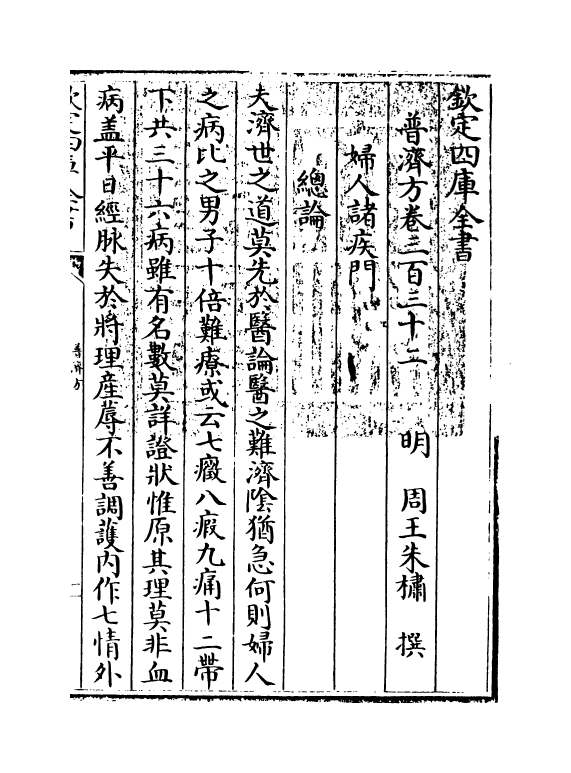 欽定四庫全書
普濟方卷三百三十二
明 周王朱橚 撰
婦人諸疾門
總論
夫濟世之道莫先於醫論醫之難濟陰猶急何則婦人
之病比之男子十倍難療或云七癥八瘕九痛十二帶
下共三十六病雖有名數莫詳證狀惟原其理莫非血
病盖平日經脉失於將理產蓐不善調護内作七情外
普濟方